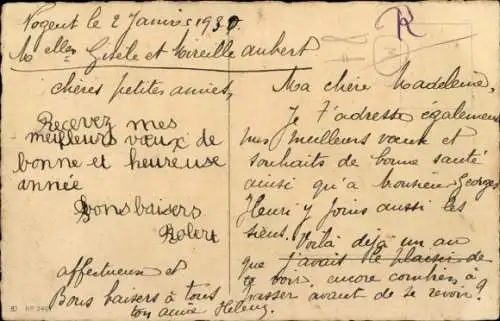 Nogent le 2 Janvier 1930.
Melles Gisèle et Mireille Aubert
chères petites amies,
Recevez mes
meilleurs vœux de
bonne et heureuse
année
Bons baisers
Robert
affectueuse et
Bons baisers à tous
ton amie Hélène
R
Ma chère Madeleine,
Je t'adresse également
mes meilleurs vœux et
souhaits de bonne santé
ainsi qu'à Monsieur Georges
Henri y joins aussi les
siens. Voilà déjà un an
que j'avais le plaisir de
te voir, encore combien à
passer avant de se revoir ?